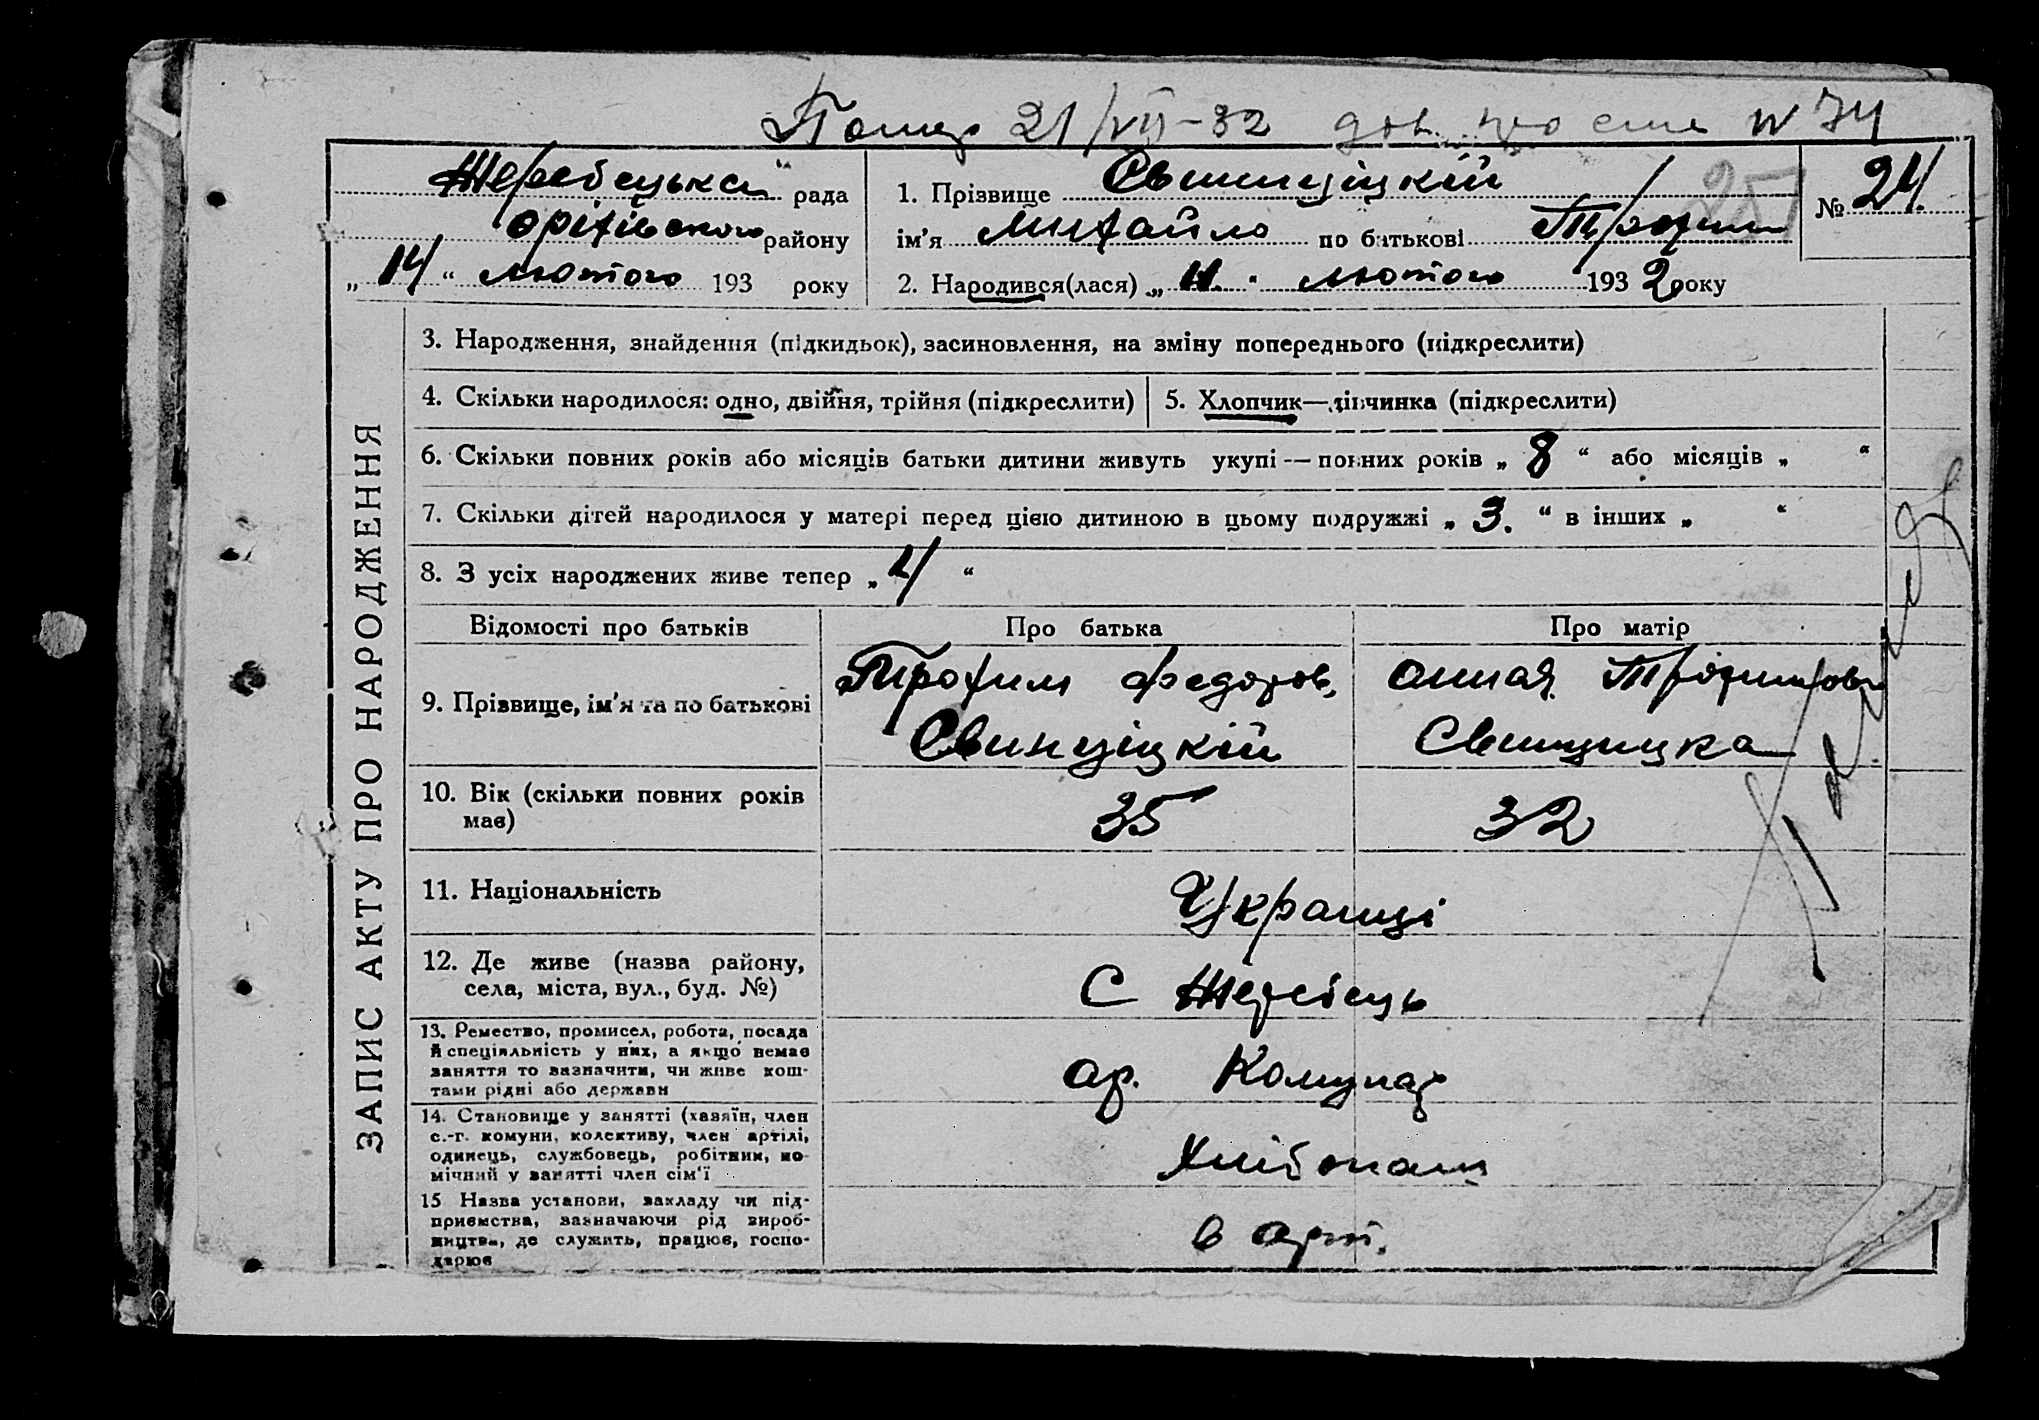 Помер 21/VII-32 дов. про см. № 74
Жеребецька рада
Оріхівского району
„14“ лютого 193 року
1. Прізвище Свинціцкій
ім'я Михайло по батькові Трохим
№ 24.
25
2. Народився(лася) „11.“ лютого 1932 року
ЗАПИС АКТУ ПРО НАРОДЖЕННЯ
3. Народження, знайдення (підкидьок), засиновлення, на зміну попереднього (підкреслити)
4. Скільки народилося: одно, двійня, трійня (підкреслити)
5. Хлопчик—дівчинка (підкреслити)
6. Скільки повних років або місяців батьки дитини живуть укупі — повних років „8“ або місяців „ “
7. Скільки дітей народилося у матері перед цією дитиною в цьому подружжі „3.“ в інших „ “
8. З усіх народжених живе тепер „4“
Відомості про батьків Про батька Про матір
9. Прізвище, ім'я та по батькові
Трохим Федоров.
Свинціцкій
Анная Трохимовн
Свинцицка
10. Вік (скільки повних років має)
35 32
11. Національність
Українці
12. Де живе (назва району,
села, міста, вул., буд. №)
С Жеребець
13. Ремество, промисел, робота, посада
й спеціяльність у них, а якщо немає
заняття то зазначити, чи живе кош-
тами рідні або держави
ар. Комунар
14. Становище у занятті (хазяїн, член
с.-г. комуни, колективу, член артілі,
одинець, службовець, робітник, по-
мічний у занятті член сім'ї
Хлібопаш
15 Назва установи, закладу чи під-
приємства, зазначаючи рід вироб-
ництва, де служить, працює, госпо-
дарює
в арт.